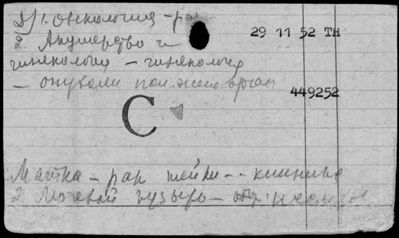 онкология - рак
29 11 52 ТН
2) Акушерство и
гинекология - гинекология
- опухоли пол. жен. орган
449252
С
Матка - рак шейки - клиника
2 Мочевой пузырь -